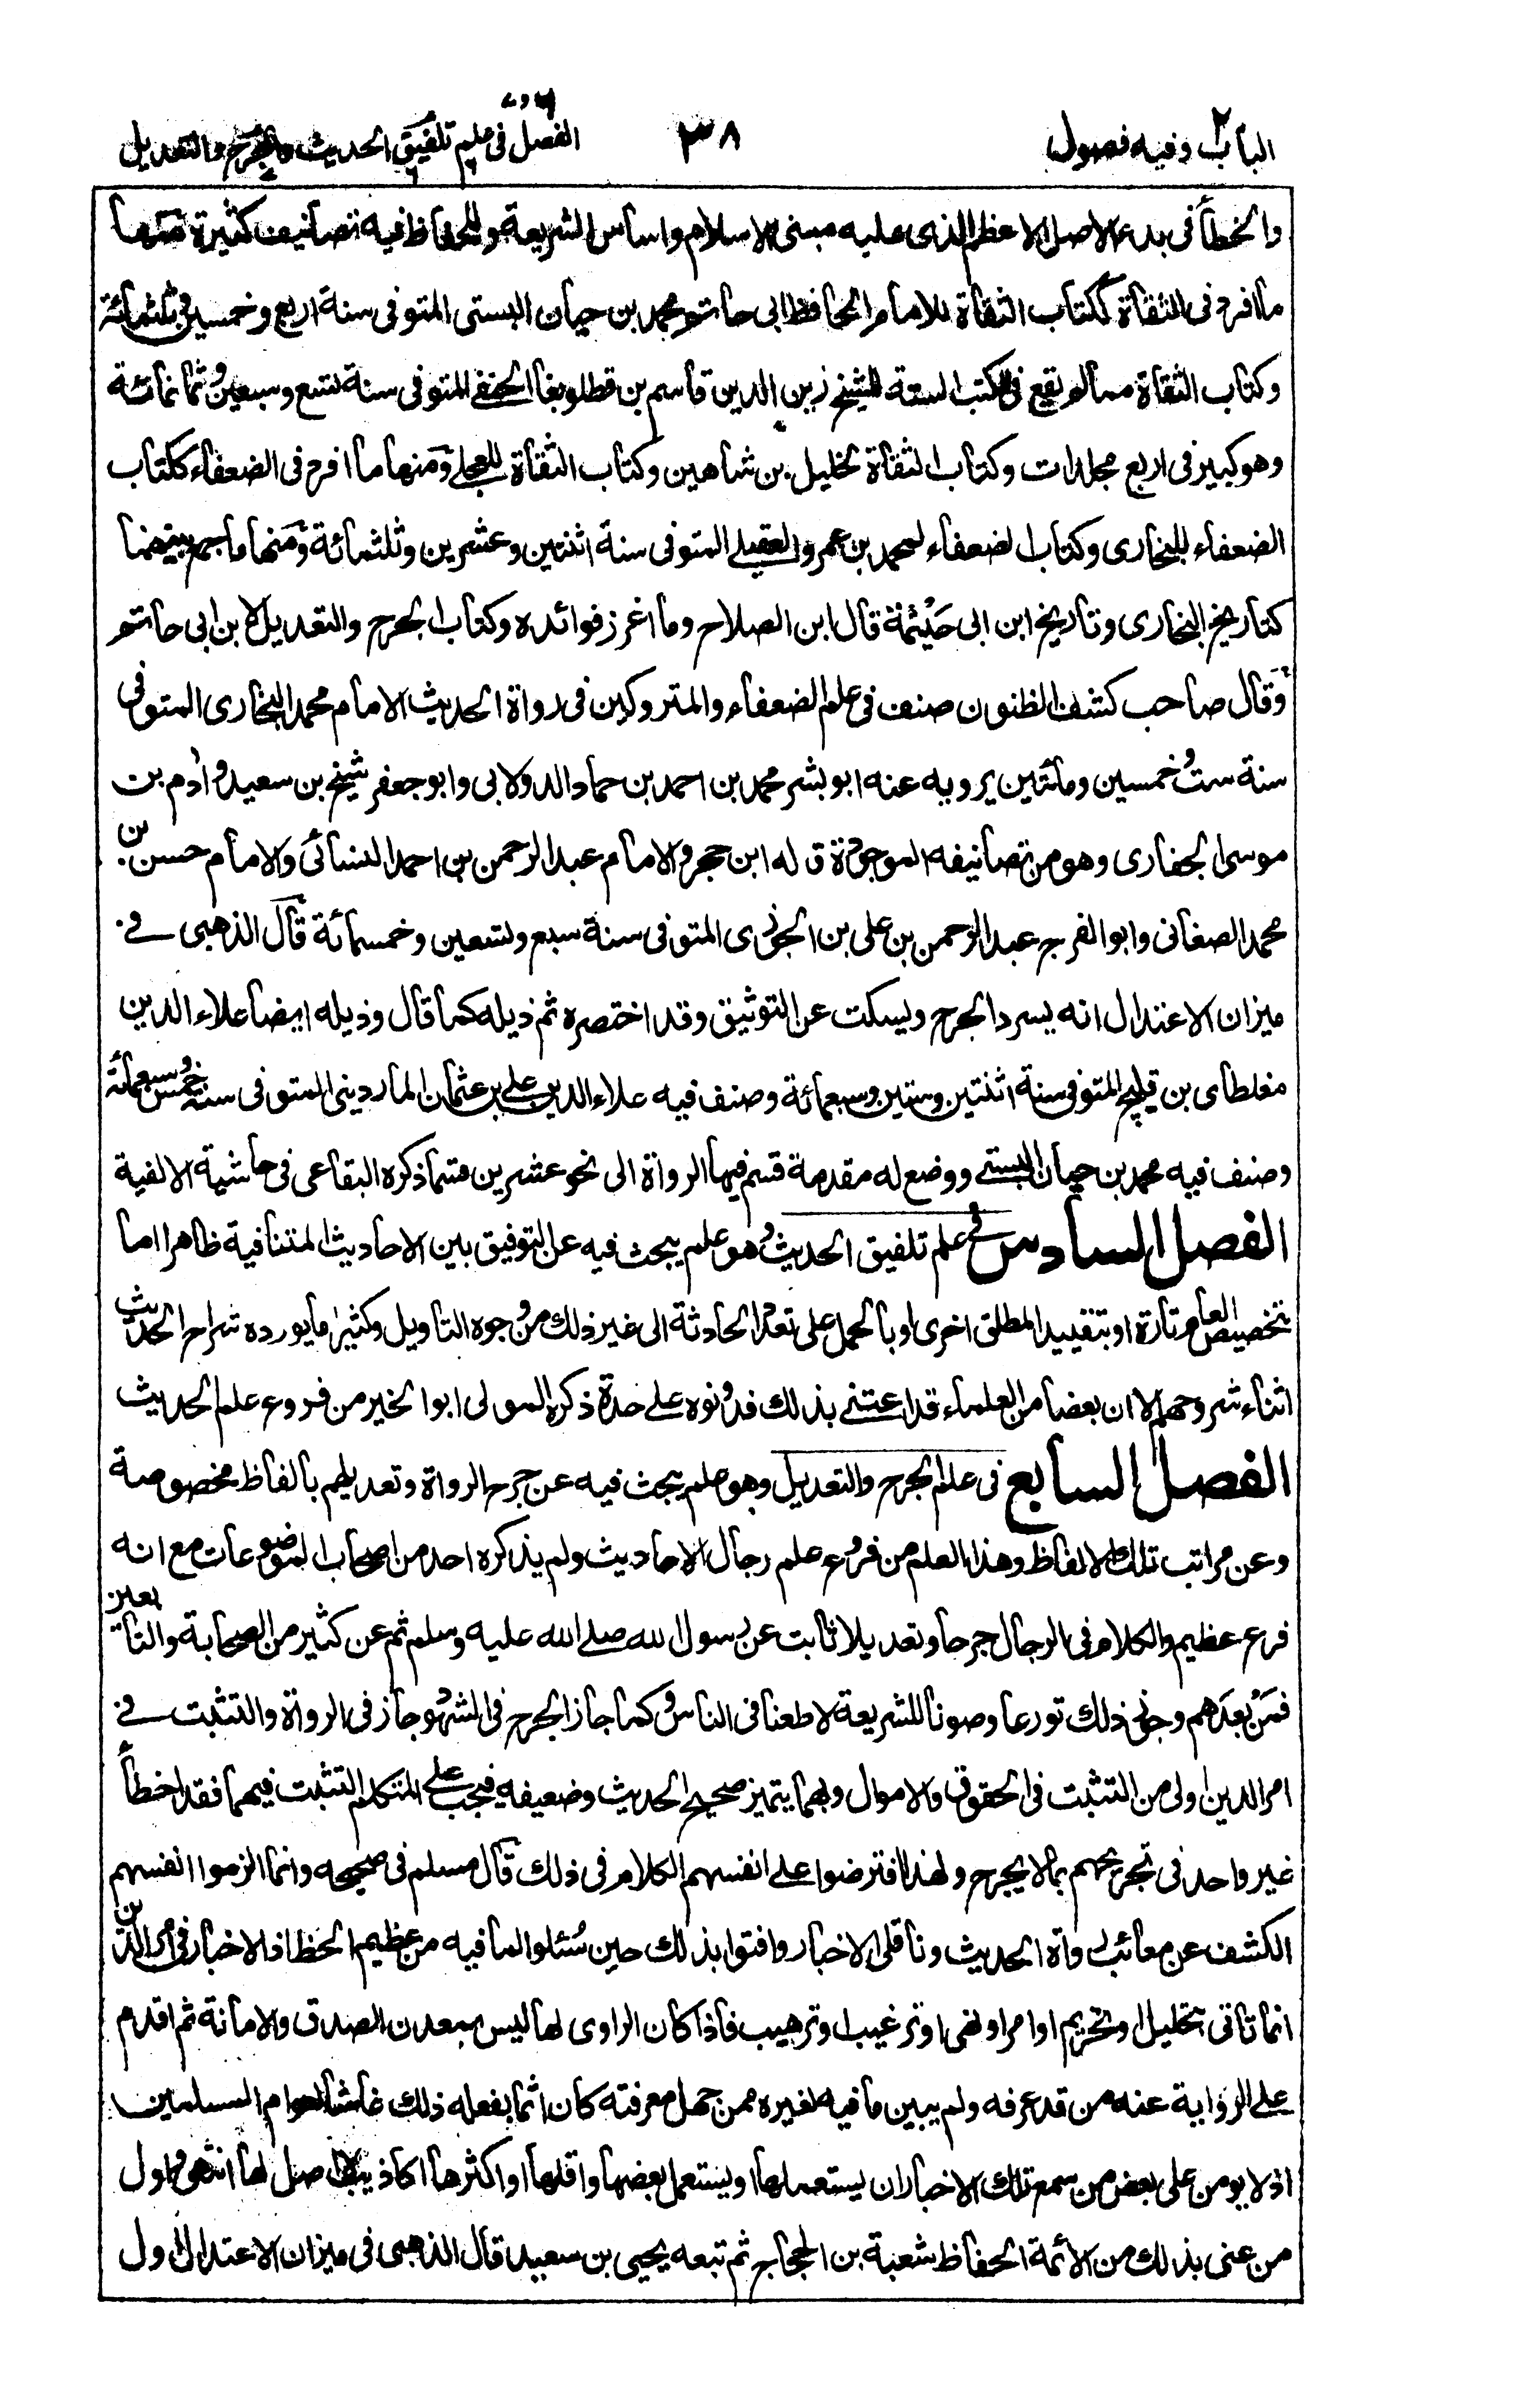 الباب ٢ وفيه فصول
٣٨
الفصل ٦ و ٧ في علم تلفيق الحديث والجرح والتعديل
والخطأ في بدء الاصل الاعظم الذى عليه مبنى الاسلام واساس الشريعة وللحفاظ فيه تصانيف كثيرة منها
ما افرد فى الثقاة ككتاب الثقاة للامام الحافظ ابى حاتم محمد بن حبان البستى المتوفى سنة اربع وخمسين وثلثمائة
وكتاب الثقاة ممالم يقع فى الكتب الستة للشيخ زين الدين قاسم بن قطلوبغا الحنفے المتوفى سنة تسع وسبعين وثمانمائة
وهو كبير فى اربع مجلدات وكتاب الثقاة لخليل بن شاهين وكتاب الثقاة للعجلے ومنها ما افرد فى الضعفاء ككتاب
الضعفاء للبخارى وكتاب الضعفاء لمحمد بن عمرو العقيلے المتوفى سنة اثنتين وعشرين وثلثمائة ومنها ما جمع بينهما
كتاريخ البخارى وتاريخ ابن ابى خيثمة قال ابن الصلاح وما اغزر فوائده وكتاب الجرح والتعديل لابن ابى حاتم
وقال صاحب كشف الظنون صنف فى علم الضعفاء والمتروكين فى رواة الحديث الامام محمد البخارى المتوفى
سنة ست وخمسين ومائتين يرويه عنه ابو بشر محمد بن احمد بن حماد الدولابى وابو جعفر شيخ بن سعيد وآدم بن
موسى الجفارى وهو من تصانيفه الموجودة قاله ابن حجر والامام عبد الرحمن بن احمد النسائى والامام حسن بن
محمد الصغانى وابو الفرج عبد الرحمن بن على بن الجوزى المتوفى سنة سبع وتسعين وخمسمائة قال الذهبى فے
ميزان الاعتدال انه يسرد الجرح ويسكت عن التوثيق وقد اختصره ثم ذيله كما قال وذيله ايضا علاء الدين
مغلطاى بن قليج المتوفى سنة اثنتين وستين وسبعمائة وصنف فيه علاء الدين علے بن عثمان الماردينى المتوفى سنة خمسين وسبعمائة
وصنف فيه محمد بن حبان البستے ووضع له مقدمة قسم فيها الرواة الى نحو عشرين قسما ذكره البقاعى فى حاشية الالفية
الفصل السادس فے علم تلفيق الحديث وهو علم يبحث فيه عن التوفيق بين الاحاديث المتنافية ظاهرا اما
بتخصيص العام تارة او بتقييد المطلق اخرى او بالحمل على تعدد الحادثة الى غير ذلك من وجوه التاويل وكثيرا ما يورده شراح الحديث
اثناء شروحهم الا ان بعضا من العلماء قد اعتنے بذلك فدونوه علے حدة ذكره المولى ابو الخير من فروع علم الحديث
الفصل السابع فى علم الجرح والتعديل وهو علم يبحث فيه عن جرح الرواة وتعديلهم بالفاظ مخصوصة
وعن مراتب تلك الالفاظ وهذا العلم من فروع علم رجال الاحاديث ولم يذكره احد من اصحاب الموضوعات مع انه
فرع عظيم والكلام فى الرجال جرحا وتعديلا ثابت عن رسول الله صلے الله عليه وسلم ثم عن كثير من الصحابة والتابعين
فمن بعدهم وجوز ذلك تورعا وصونا للشريعة لا طعنا فى الناس وكما جاز الجرح فى الشهود جاز فى الرواة والتثبت فے
امر الدين اولى من التثبت فى الحقوق والاموال وبهما يتميز صحيح الحديث وضعيفه فيجب علے المتكلم التثبت فيهما فقد اخطأ
غير واحد فى تجريحهم بما لا يجرح ولهذا افترضوا علے انفسهم الكلام فى ذلك قال مسلم فى صحيحه وانما الزموا انفسهم
الكشف عن معائب رواة الحديث وناقلى الاخبار وافتوا بذلك حين سئلوا لما فيه من عظيم الحظ اذ الاخبار فى امر الدين
انما تاتى بتحليل او تحريم او امر او نهى او ترغيب او ترهيب فاذا كان الراوى لها ليس بمعدن الصدق والامانة ثم اقدم
علے الرواية عنه من قد عرفه ولم يبين ما فيه لغيره ممن جهل معرفته كان آثما بفعله ذلك غاشا لعوام المسلمين
اذ لا يومن على بعض من سمع تلك الاخبار ان يستعملها او يستعمل بعضها واقلها او اكثرها اكاذيب لا اصل لها انتهى واول
من عنى بذلك من الأئمة الحفاظ شعبة بن الحجاج ثم تبعه يحيى بن سعيد قال الذهبى فى ميزان الاعتدال اول